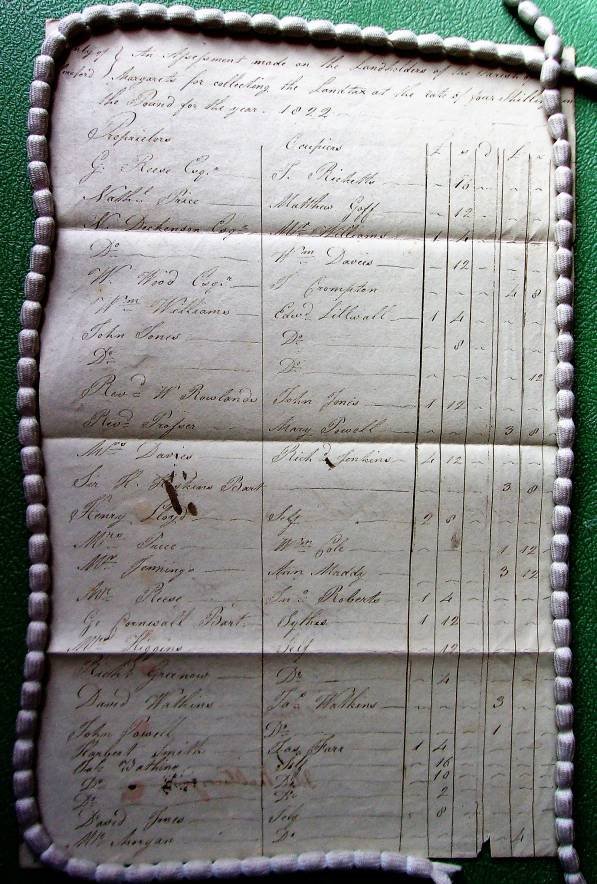 ty of } An Assessment made on the Landholders of the Parish
Margarets for collecting the Landtax at the rate of four Shillings in
the Pound for the year - 1822
Proprietors Occupiers £ s d £ s
G. Reese Esqr T. Ricketts
Nathl Price Matthew Goff 12
N. Deckenson Esqr Mr Williams 1 4
Do Wm Davies 12
W. Wood Esqr J Crompton 4 8
Wm Williams Edwd Littwall 1 4
John Jones Do 8
Do Do 12
Revd W Rowlands John Jones 1 12
Revd Prosser Mary Powell 3 8
Mrs Davies Richd Jenkins 4 12
Sir H. Bart 3 8
Henry Lloyd Self 2 8
Mrs Price Wm Cole 1 12
Mr Jennings Ann Maddy 3 12
Mr Reese Jno Roberts 1 4
G. Cornwall Bart 1 12
Mrs Higgins Self 12
Richd Greenow Do 4
David Watkins Jas Watkins 3
John Powell Do 1
Harbert Smith Farr 1 4
Watkins Self 16
Do Do 10
Do Do 2
David Jones Self 8
Mr Morgan Do 4